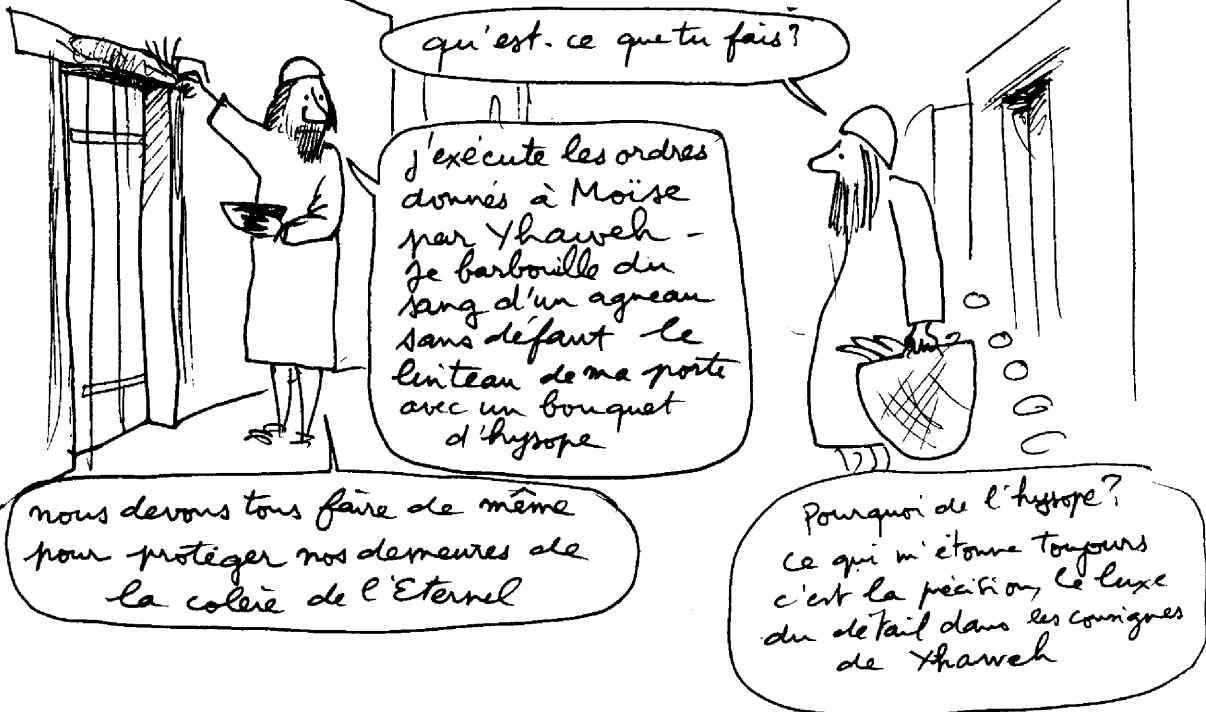 qu'est-ce que tu fais?
j'exécute les ordres
donnés à Moïse
par Yhaweh -
je barbouille du
sang d'un agneau
sans défaut le
linteau de ma porte
avec un bouquet
d'hysope
nous devons tous faire de même
pour protéger nos demeures de
la colère de l'Eternel
Pourquoi de l'hysope?
ce qui m'étonne toujours
c'est la précision, le luxe
du détail dans les consignes
de Yhaweh